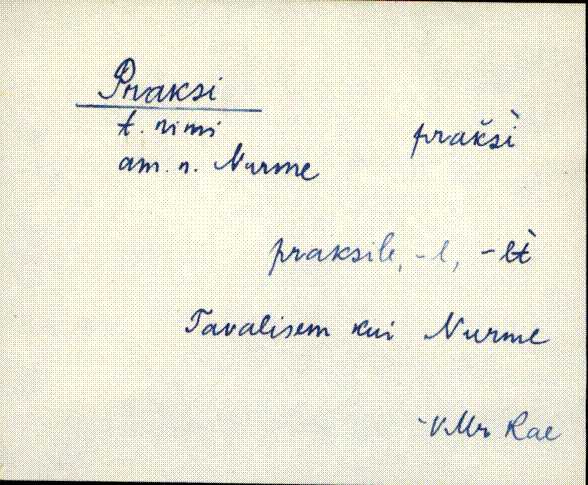 Praksi
t. nimi
prakši̇̀
am. n. Nurme
praksile, -l, -lt̀
Tavalisem kui Nurme
V.Mr Rae